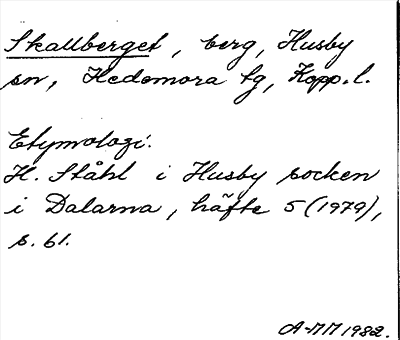 Skallberget, berg, Husby
sn, Hedemora tg, Kopp. l.
Etymologi:
H. Ståhl i Husby socken
i Dalarna, häfte 5 (1979),
s. 61.
A-MM 1982.